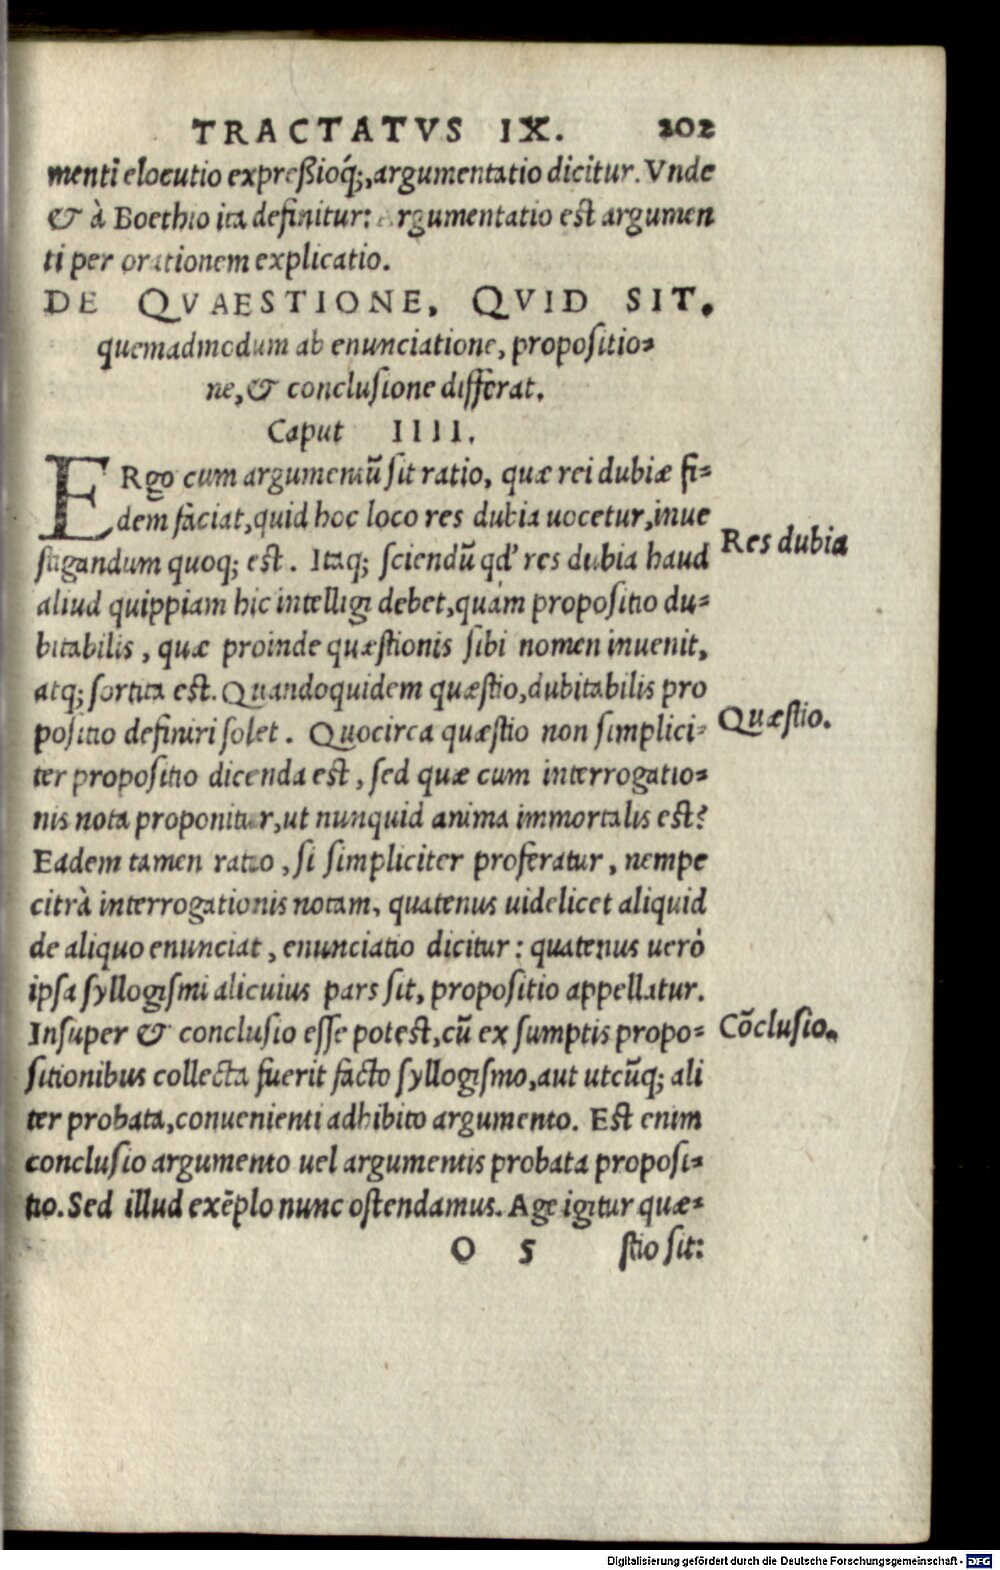 TRACTATVS IX. 202
menti elocutio expreßioq́;, argumentatio dicitur. Vnde
& à Boethio ita definitur: Argumentatio est argumen
ti per orationem explicatio.
DE QVAESTIONE, QVID SIT,
quemadmodum ab enunciatione, propositio=
ne, & conclusione differat.
Caput IIII.
ERgo cum argumentū sit ratio, quæ rei dubiæ fi=
dem faciat, quid hoc loco res dubia uocetur, inue
Res dubia
stigandum quoq; est. Itaq; sciendū qd' res dubia haud
aliud quippiam hic intelligi debet, quàm propositio du=
bitabilis, quæ proinde quæstionis sibi nomen inuenit,
atq; sortita est. Quandoquidem quæstio, dubitabilis pro
Quæstio.
positio definiri solet. Quocirca quæstio non simplici=
ter propositio dicenda est, sed quæ cum interrogatio=
nis nota proponitur, ut nunquid anima immortalis est?
Eadem tamen ratio, si simpliciter proferatur, nempe
citrà interrogationis notam, quatenus uidelicet aliquid
de aliquo enunciat, enunciatio dicitur: quatenus uerò
ipsa syllogismi alicuius pars sit, propositio appellatur.
Insuper & conclusio esse potest, cū ex sumptis propo=
Cōclusio.
sitionibus collecta fuerit facto syllogismo, aut utcūq; ali
ter probata, conuenienti adhibito argumento. Est enim
conclusio argumento uel argumentis probata proposi=
tio. Sed illud exēplo nunc ostendamus. Age igitur quæ=
O 5 stio sit:
Digitalisierung gefördert durch die Deutsche Forschungsgemeinschaft - DFG